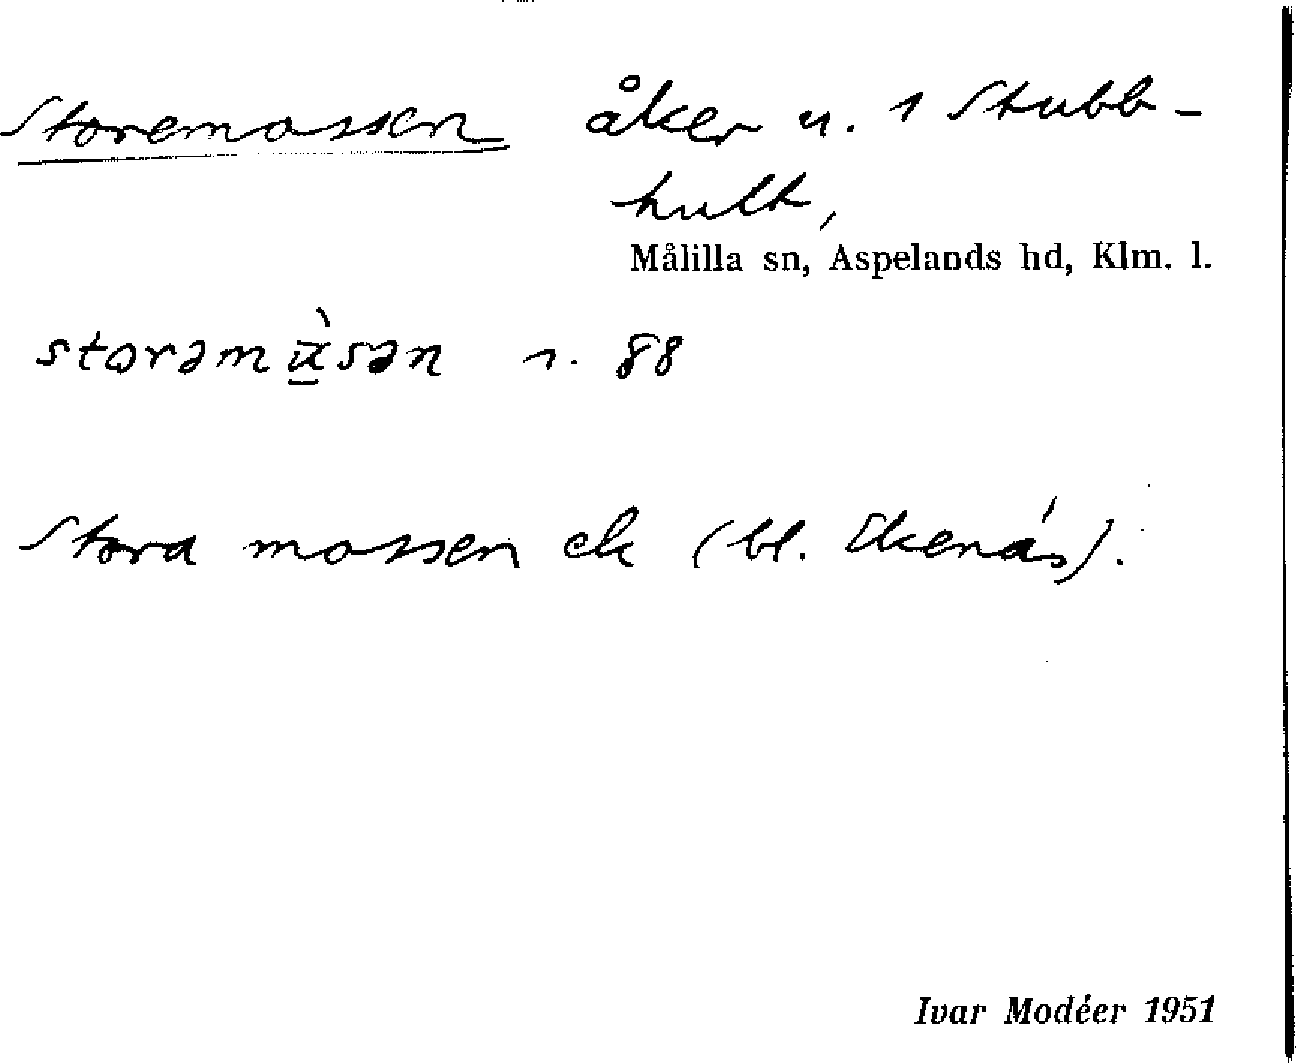 Storemossen åker u. 1 Stubb-
hult,
Målilla sn, Aspelands hd, Klm. l.
r. 88
Stora mossen ek (bl. Ekenäs).
Ivar Modéer 1951